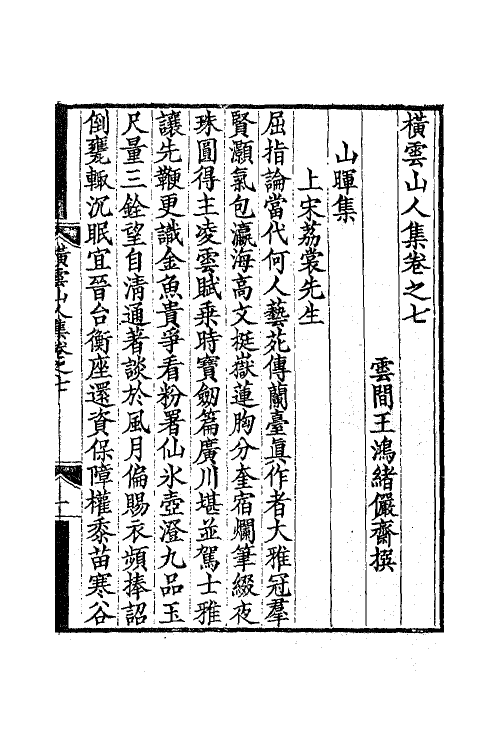 橫雲山人集卷之七
雲間王鴻緒儼齋撰
山暉集
上宋荔裳先生
屈指論當代何人藝苑傳蘭臺眞作者大雅冠羣
賢灝氣包瀛海高文挺嶽蓮胸分奎宿爛筆綴夜
珠圓得主凌雲賦乗時寶劒篇廣川堪並駕士雅
讓先鞭更議金魚貴爭看粉署仙氷壺澄九品玉
尺量三銓望自清通著談於風月偏賜衣頻捧詔
倒甕輙沉眠宜晉台衡座還資保障權黍苗寒谷
橫雲山人集卷之七
一